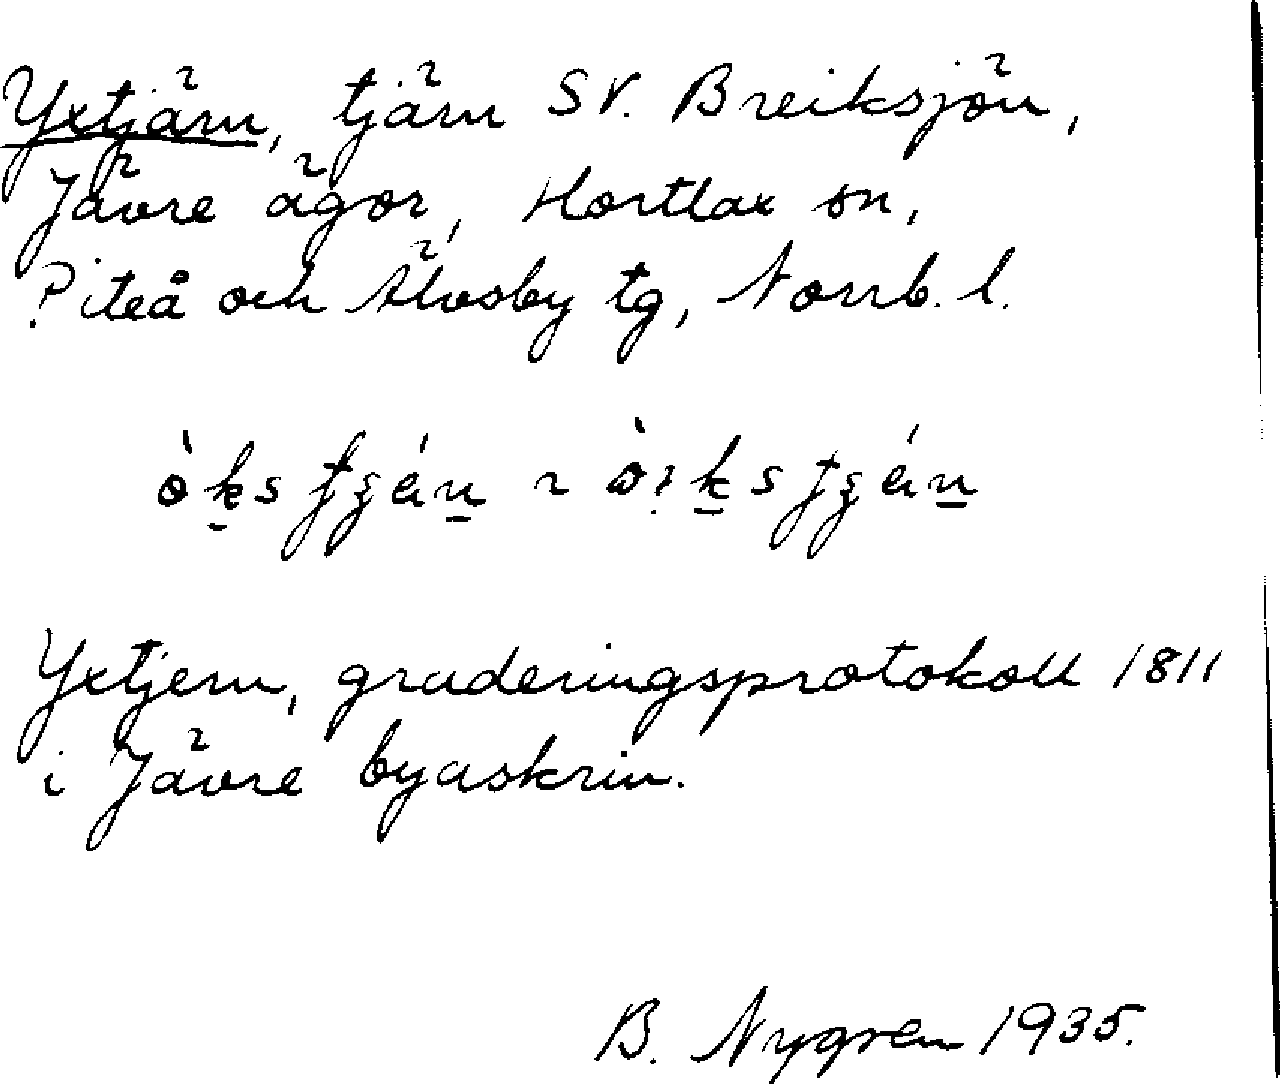 Yxtjärn, tjärn SV. Breiksjön,
Jävre ägor, Hortlax sn,
Piteå och Älvsby tg, Norrb. l.
Yxtjern, graderingsprotokoll 1811
i Jävre byaskrin.
B. Nygren 1935.